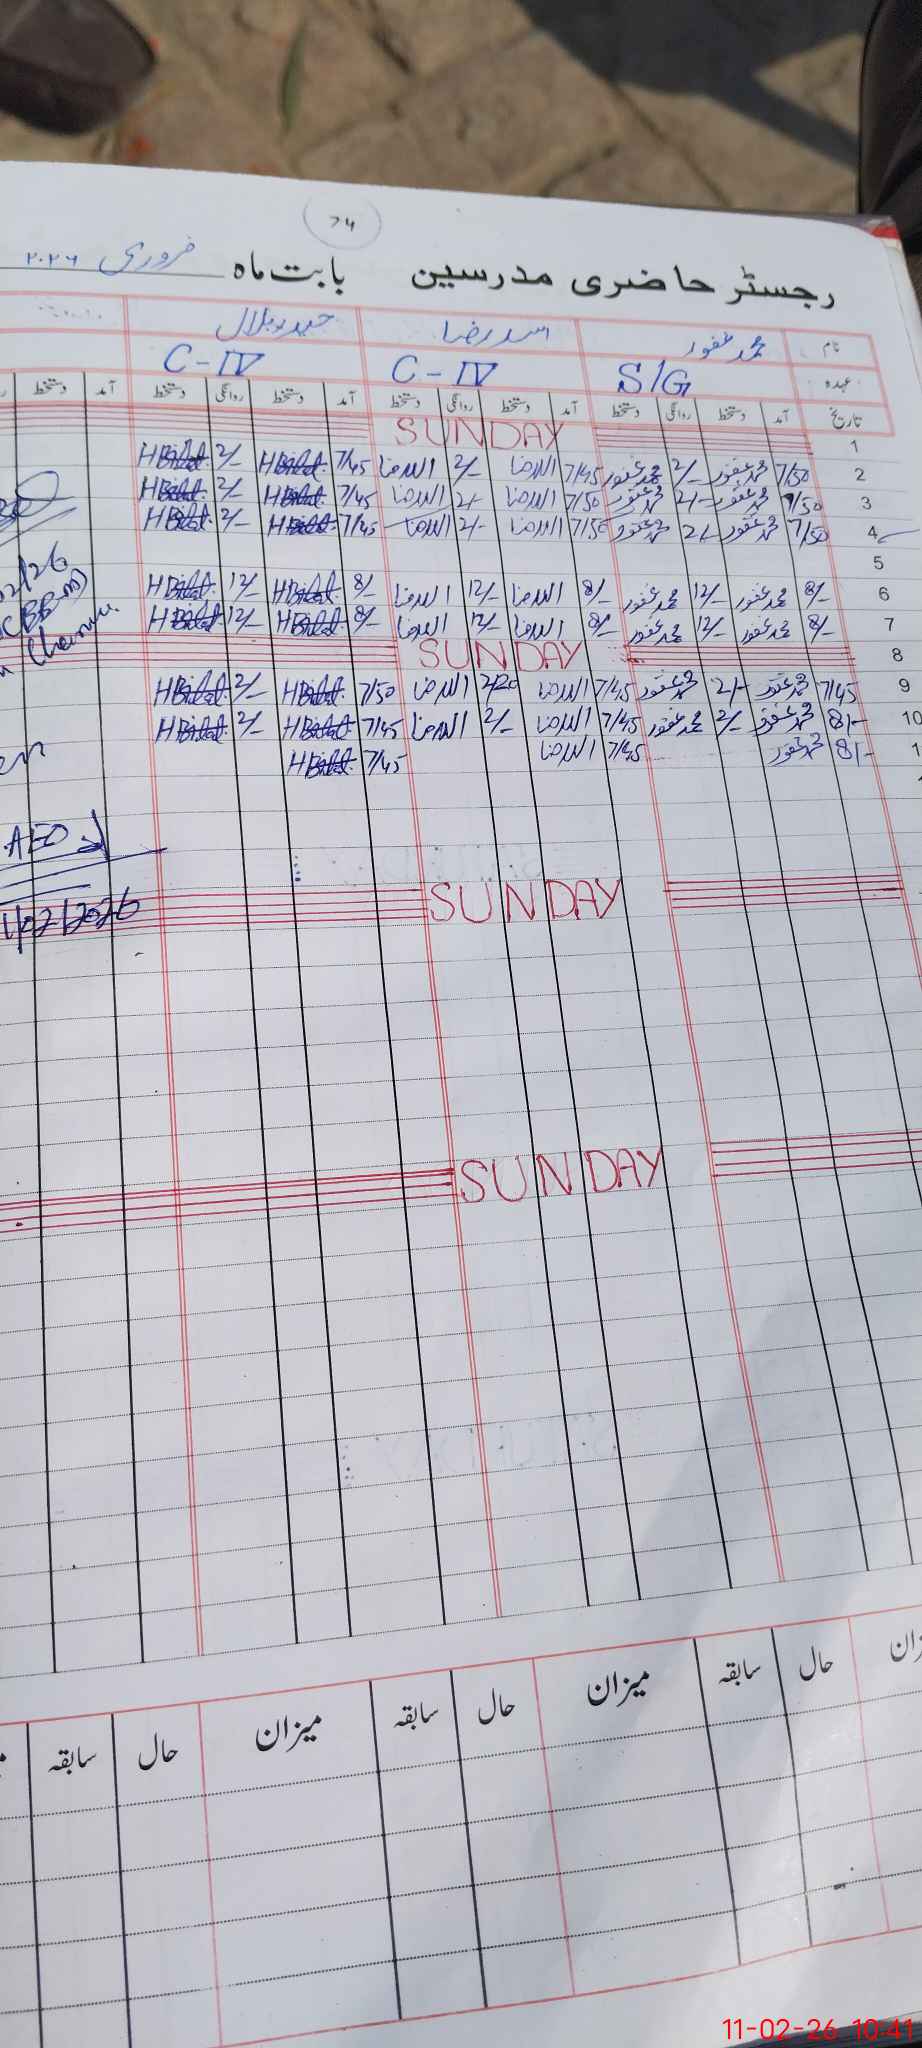 74
رجسٹر حاضری مدرسین بابت ماہ فروری ۲۰۲۶
نام محمد غفور اسد رضا حیدر بلال
عہدہ S/G C-IV C-IV
تاریخ آمد دستخط روانگی دستخط آمد دستخط روانگی دستخط آمد دستخط روانگی دستخط آمد دستخط
1 SUNDAY
2 7/50 محمد غفور 2/- محمد غفور 7/45 اسد رضا 2/- اسد رضا 7/45 HBilal 2/- HBilal
3 /50 محمد غفور 2/- محمد غفور 7/50 اسد رضا 2/- اسد رضا 7/45 HBilal 2/- HBilal
4 7/50 محمد غفور 2/- محمد غفور 7/50 اسد رضا 2/- اسد رضا 7/45 HBilal 2/- HBilal
5
6 8/- محمد غفور 12/- محمد غفور 8/- اسد رضا 12/- اسد رضا 8/- HBilal 12/- HBilal
7 8/- محمد غفور 12/- محمد غفور 8/- اسد رضا 12/- اسد رضا 8/- HBilal 12/- HBilal
8 SUNDAY
9 7/45 محمد غفور 2/- محمد غفور 7/45 اسد رضا 2/20 اسد رضا 7/50 HBilal 2/- HBilal
10 8/- محمد غفور 2/- محمد غفور 7/45 اسد رضا 2/- اسد رضا 7/45 HBilal 2/- HBilal
1 8/- محمد غفور 7/45 اسد رضا 7/45 HBilal
02/26
AEO
SUNDAY
1/02/2026
SUNDAY
حال سابقہ میزان حال سابقہ میزان حال سابقہ
11-02-26 10:41